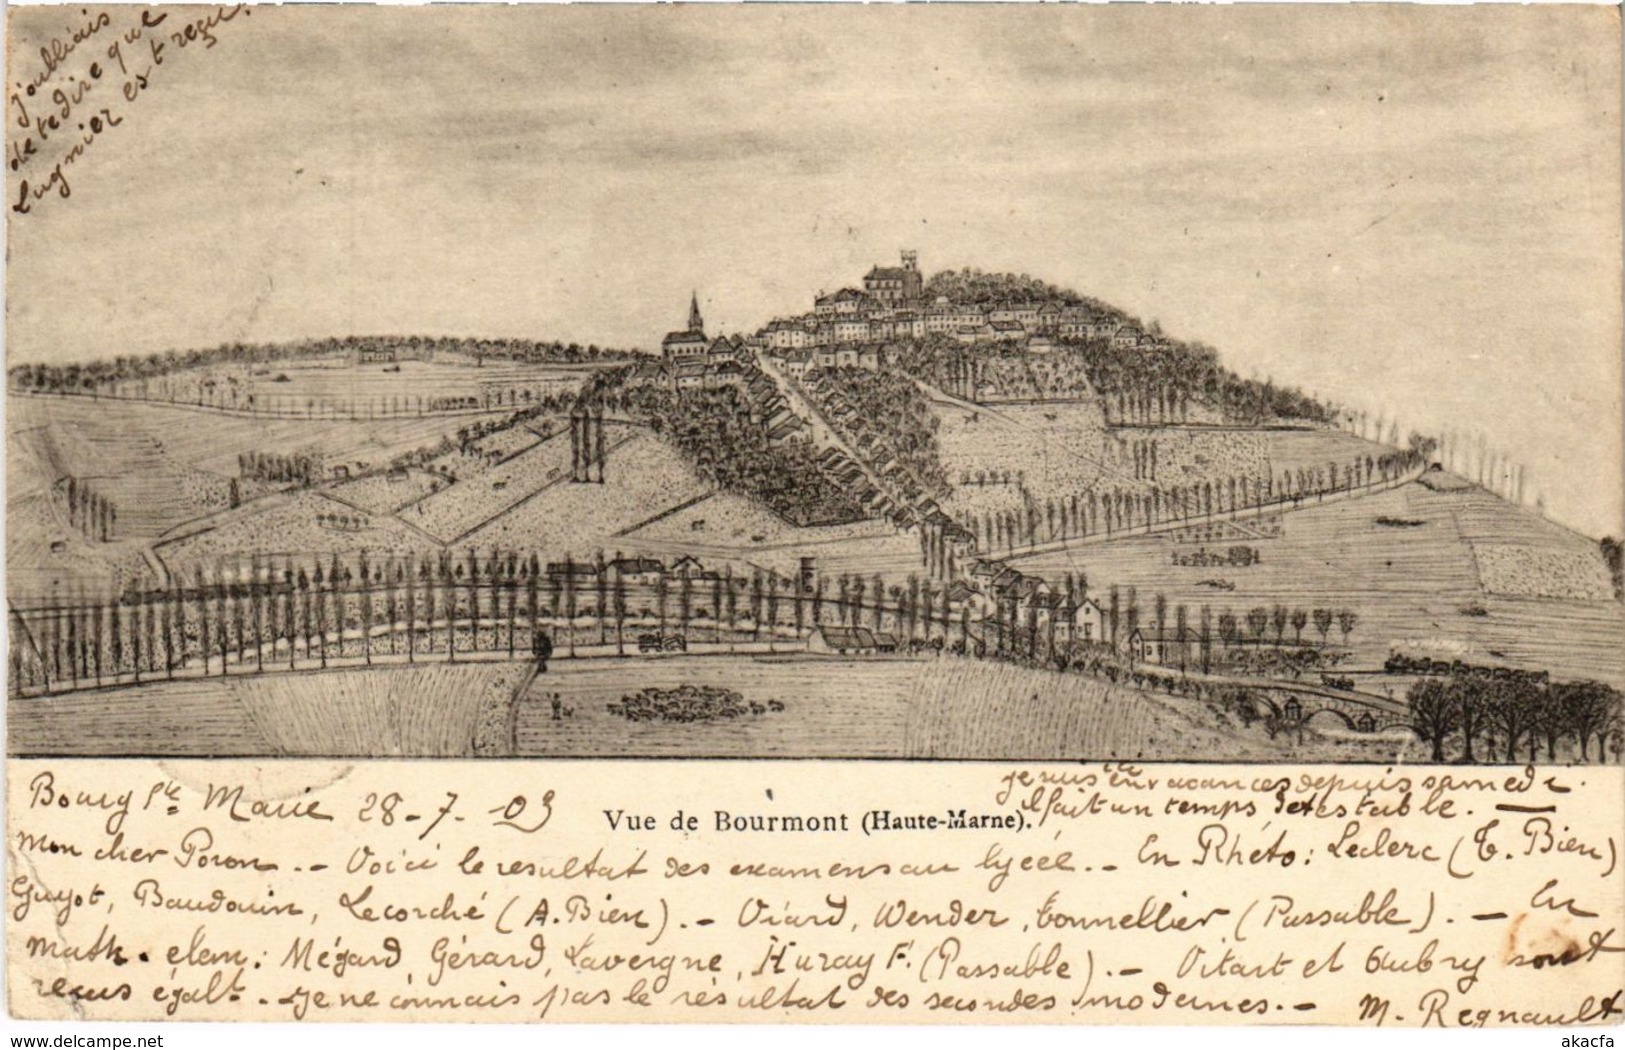 j'oubliais
de te dire que
Lugnier est reçu.
Bourg Ste Marie 28-7-03
Vue de Bourmont (Haute-Marne).
je suis ici en vacances depuis samedi.
Il fait un temps détestable. —
Mon cher Poron. - Voici le resultat des examens au lycée. - En Rhéto: Leclerc (T. Bien)
Guyot, Baudouin, Lecorché (A. Bien). - Viard, Wender, Tonnellier (Passable). - En
Math. elem: Mégard, Gérard, Lavergne, Huray F. (Passable). - Vitart et Aubry sont
reçus égalt. - Je ne connais pas le résultat des secondes modernes. - M. Regnault
delcampe.net
akacfa